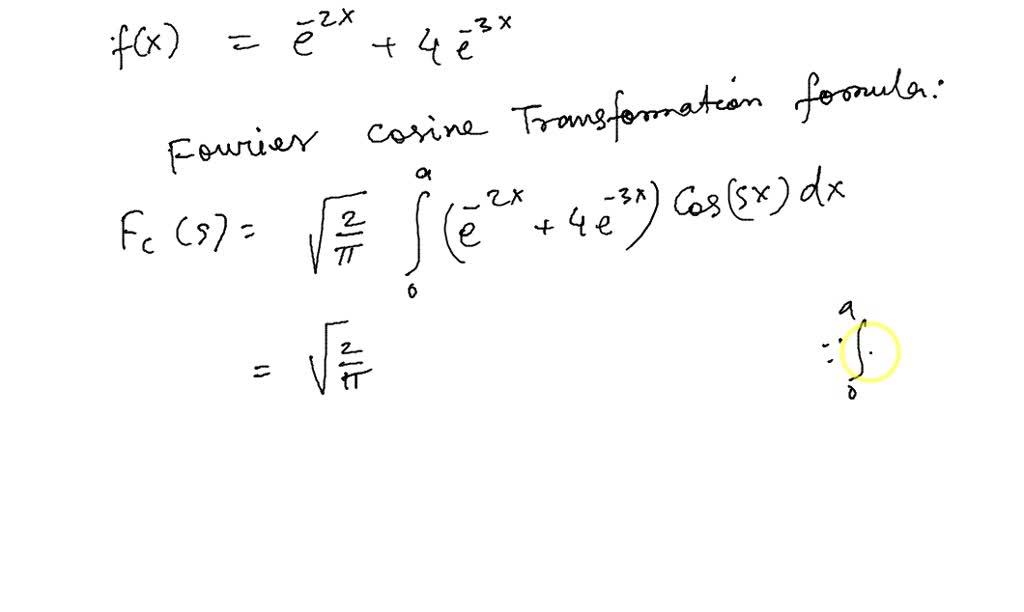 f(x) = e^{-2x} + 4e^{-3x}
Fourier cosine Transformation formula:
F_c (s) = √(2/π) ∫_0^a (e^{-2x} + 4e^{-3x}) Cos(sx) dx
= √(2/π) ∫_0^a